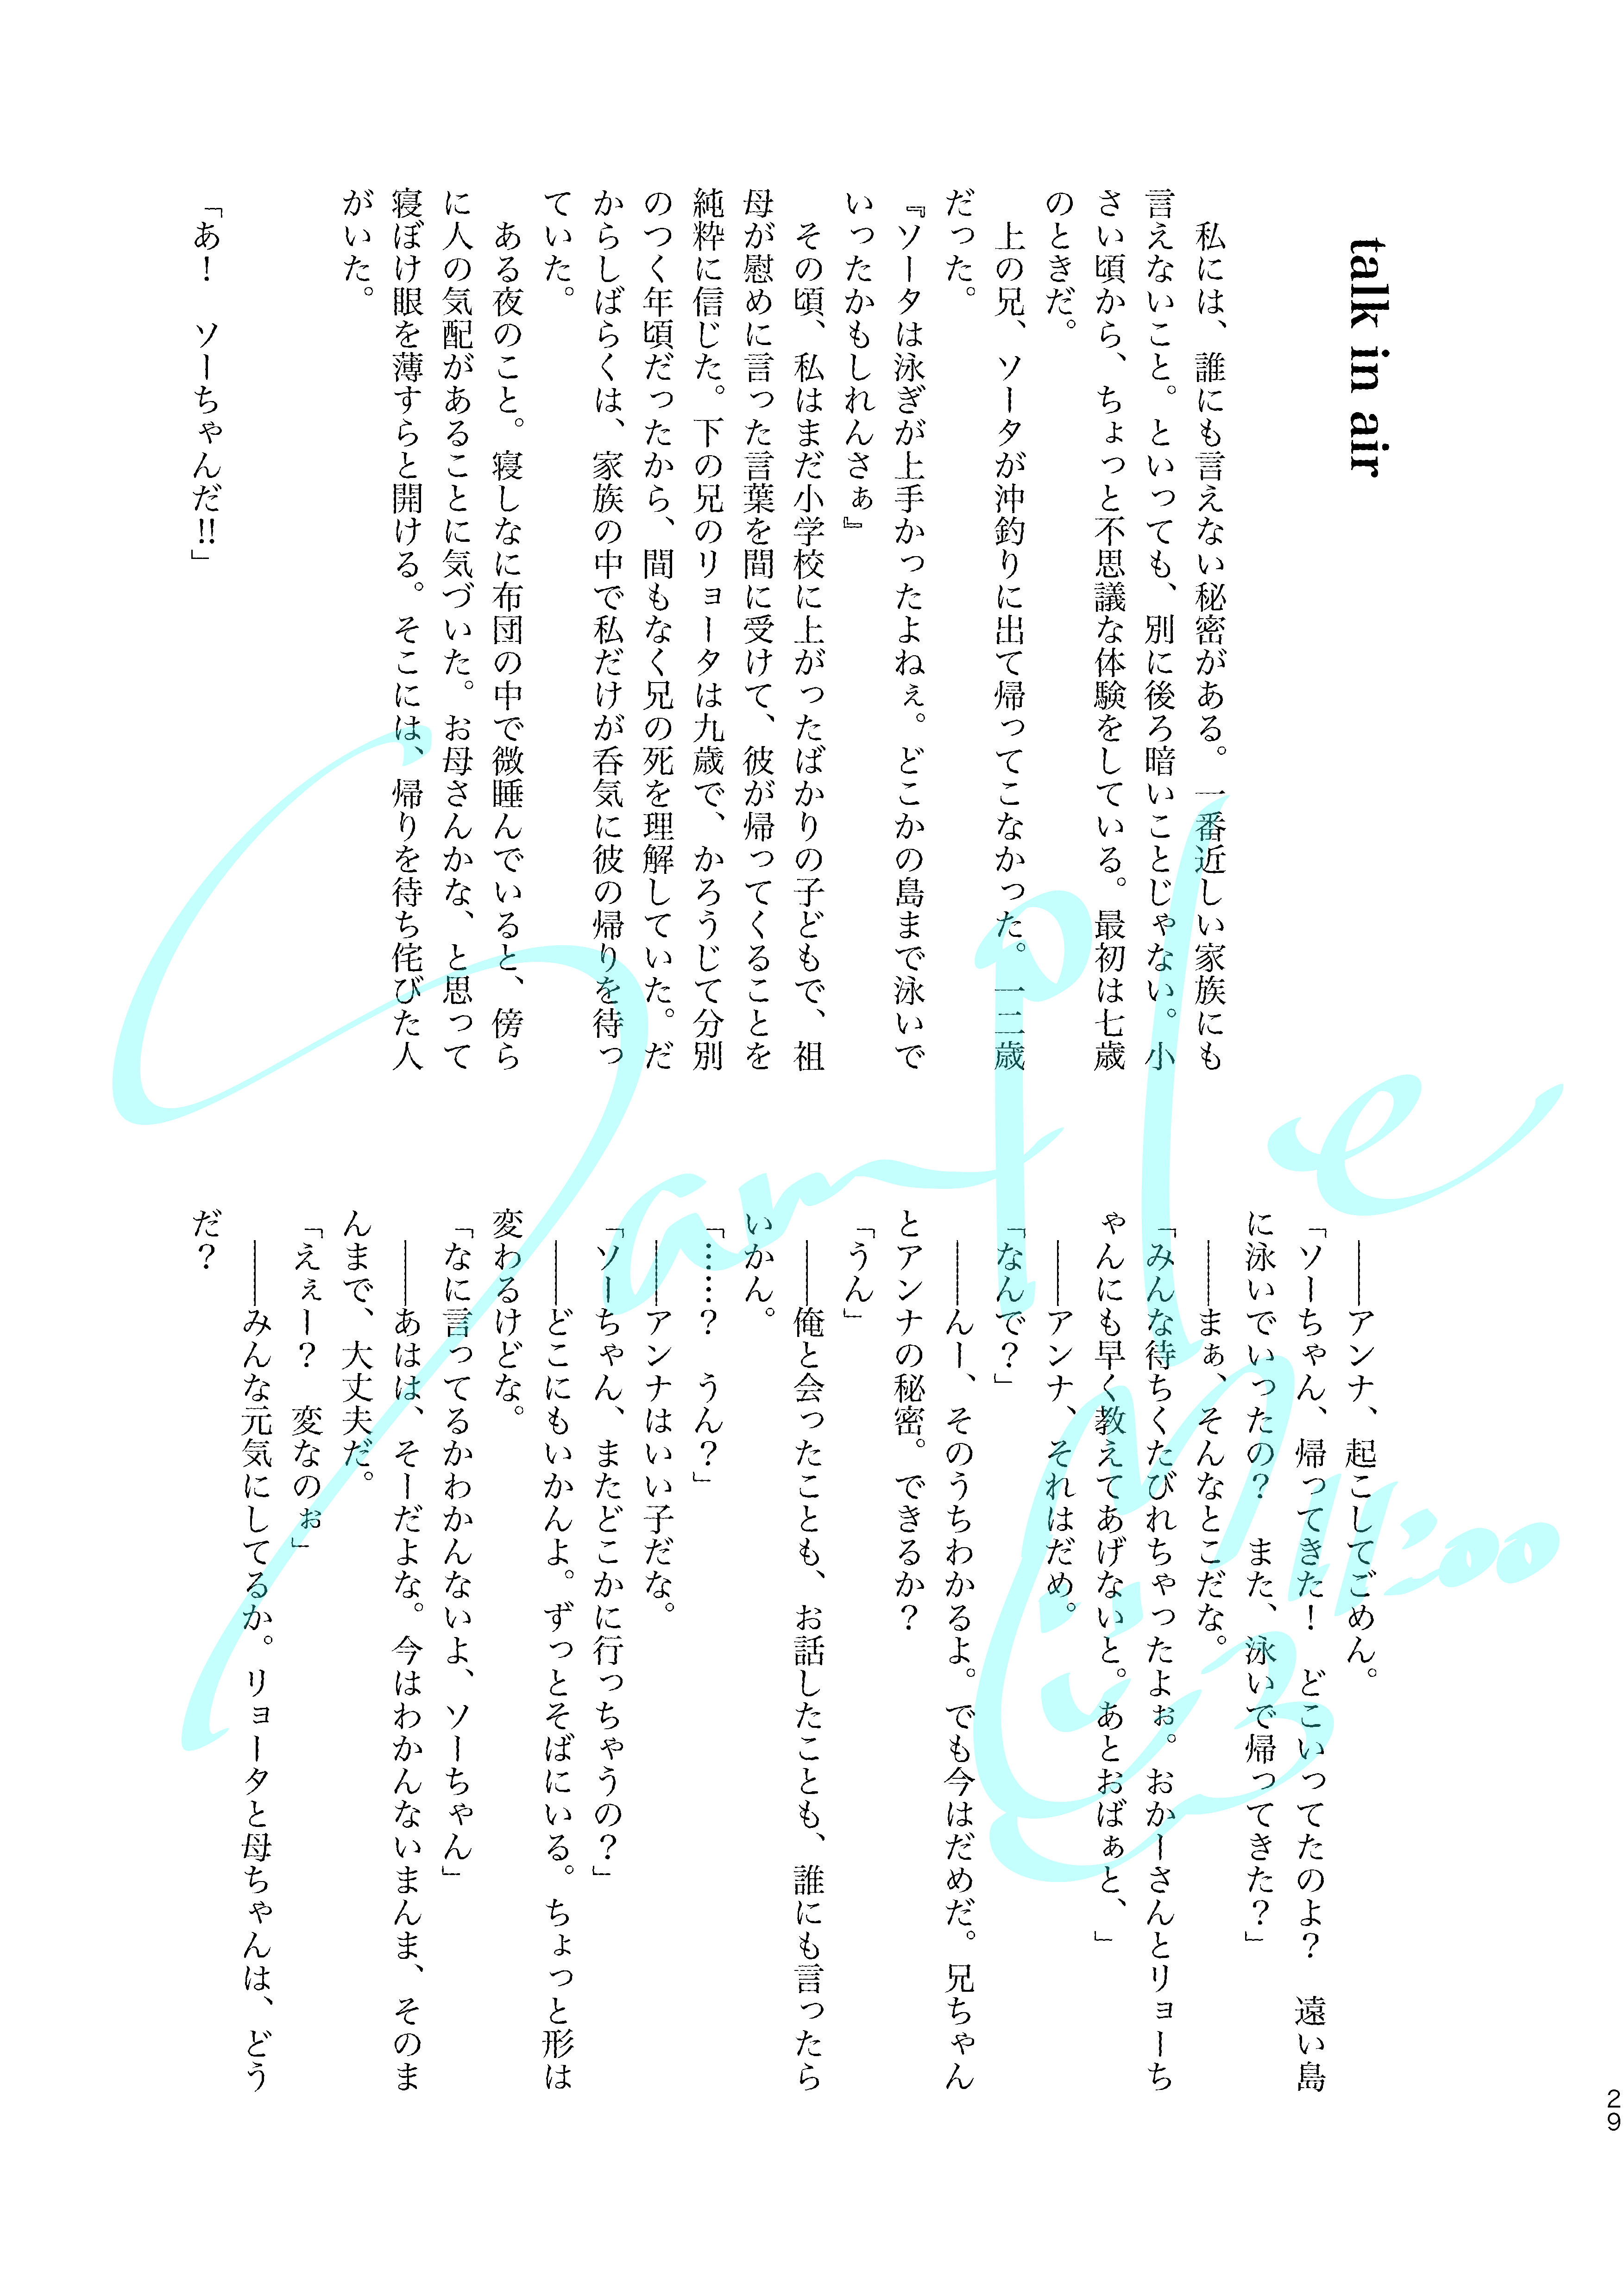 talk in air
　私には、誰にも言えない秘密がある。一番近しい家族にも
言えないこと。といっても、別に後ろ暗いことじゃない。小
さい頃から、ちょっと不思議な体験をしている。最初は七歳
のときだ。
　上の兄、ソータが沖釣りに出て帰ってこなかった。一二歳
だった。
『ソータは泳ぎが上手かったよねぇ。どこかの島まで泳いで
いったかもしれんさぁ』
　その頃、私はまだ小学校に上がったばかりの子どもで、祖
母が慰めに言った言葉を間に受けて、彼が帰ってくることを
純粋に信じた。下の兄のリョータは九歳で、かろうじて分別
のつく年頃だったから、間もなく兄の死を理解していた。だ
からしばらくは、家族の中で私だけが呑気に彼の帰りを待っ
ていた。
　ある夜のこと。寝しなに布団の中で微睡んでいると、傍ら
に人の気配があることに気づいた。お母さんかな、と思って
寝ぼけ眼を薄すらと開ける。そこには、帰りを待ち侘びた人
がいた。
「あ！　ソーちゃんだ!!」
　――アンナ、起こしてごめん。
「ソーちゃん、帰ってきた！　どこいってたのよ？　遠い島
に泳いでいったの？　また、泳いで帰ってきた？」
　――まぁ、そんなとこだな。
「みんな待ちくたびれちゃったよぉ。おかーさんとリョーち
ゃんにも早く教えてあげないと。あとおばぁと、」
　――アンナ、それはだめ。
「なんで？」
　――んー、そのうちわかるよ。でも今はだめだ。兄ちゃん
とアンナの秘密。できるか？
「うん」
　――俺と会ったことも、お話したことも、誰にも言ったら
いかん。
「……？　うん？」
　――アンナはいい子だな。
「ソーちゃん、またどこかに行っちゃうの？」
　――どこにもいかんよ。ずっとそばにいる。ちょっと形は
変わるけどな。
「なに言ってるかわかんないよ、ソーちゃん」
　――あはは、そーだよな。今はわかんないまんま、そのま
んまで、大丈夫だ。
「えぇー？　変なのぉ」
　――みんな元気にしてるか。リョータと母ちゃんは、どう
だ？
29
Sample
M11:00